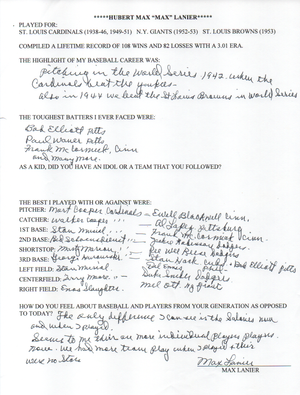 *****HUBERT MAX "MAX" LANIER*****
PLAYED FOR:
ST. LOUIS CARDINALS (1938-46, 1949-51) N.Y. GIANTS (1952-53) ST. LOUIS BROWNS (1953)
COMPILED A LIFETIME RECORD OF 108 WINS AND 82 LOSSES WITH A 3.01 ERA.
THE HIGHLIGHT OF MY BASEBALL CAREER WAS:
pitching in the World Series 1942. when the
Cardinals beat the yankees-
also in 1944 we beat the St Louis Browns in World Series
THE TOUGHEST BATTERS I EVER FACED WERE:
Bob Elliott Pitts
Paul Waner Pitts
Frank McCormick, Cinn
and many more.
AS A KID, DID YOU HAVE AN IDOL OR A TEAM THAT YOU FOLLOWED?
THE BEST I PLAYED WITH OR AGAINST WERE:
PITCHER: Mort Cooper Cardinals - Ewell Blackwell Cinn.
CATCHER: Walker Cooper - Al Lopez Pittsburg
1ST BASE: Stan Musial - Frank McCormick Cinn.
2ND BASE: Red Schoendienst - Jackie Robinson Dodgers
SHORTSTOP: Marty Marion - Pee Wee Reese Dodgers
3RD BASE: George Kurowski - Stan Hack Cubs + Bob Elliott Pitts
LEFT FIELD: Stan Musial - Del Ennis Phil.
CENTERFIELD: Terry Moore - Duke Snider Dodgers
RIGHT FIELD: Enos Slaughter. Mel Ott. Ny Giant
HOW DO YOU FEEL ABOUT BASEBALL AND PLAYERS FROM YOUR GENERATION AS OPPOSED
TO TODAY? The only difference I can see is the Salaries now
and when I played.
Seems to me their are more individual players
now. We had more team play when I played their
were no Stars
Max Lanier
MAX LANIER